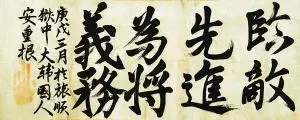 臨敵
先進
為將
義務
庚戌三月於旅順
獄中大韓國人
安重根